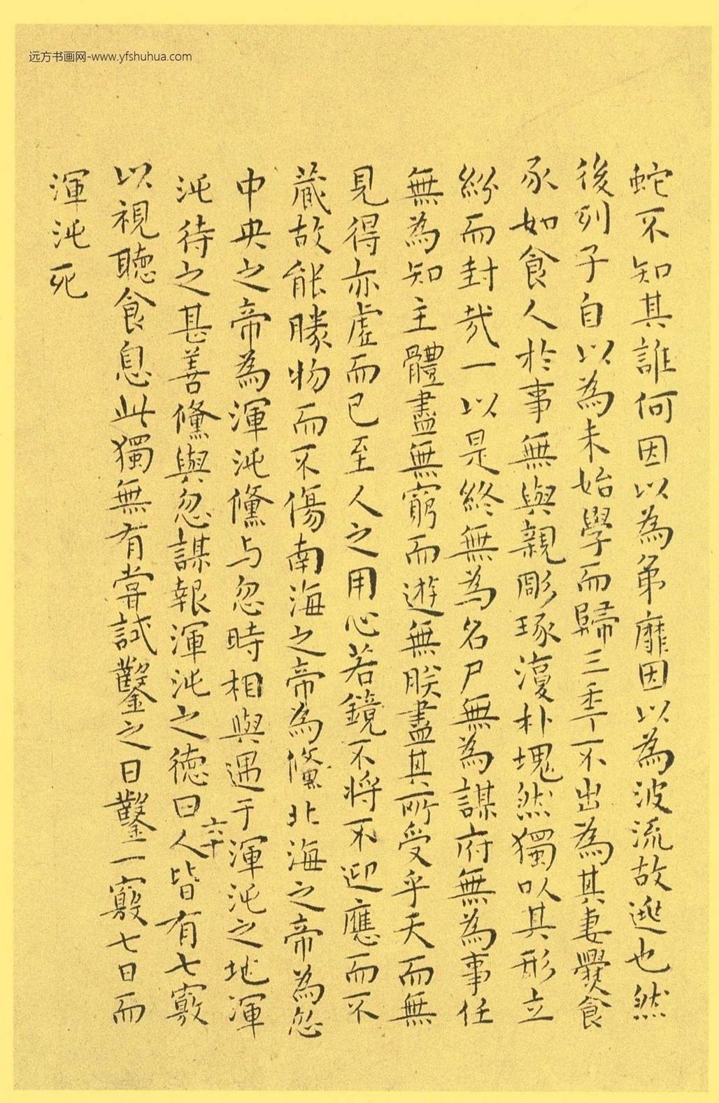 远方书画网-www.yfshuhua.com
蛇不知其誰何因以為弟靡因以為波流故逃也然
後列子自以為未始學而歸三季不出為其妻爨食
豕如食人於事無與親彫琢復朴塊然獨以其形立
紛而封哉一以是終無為名尸無為謀府無為事任
無為知主體盡無窮而遊無朕盡其所受乎天而無
見得亦虛而已至人之用心若鏡不將不迎應而不
藏故能勝物而不傷南海之帝為儵北海之帝為忽
中央之帝為渾沌儵与忽時相與遇于渾沌之地渾
沌待之甚善儵與忽謀報渾沌之德曰人皆有七竅
六十
以視聽食息此獨無有嘗試鑿之日鑿一竅七日而
渾沌死